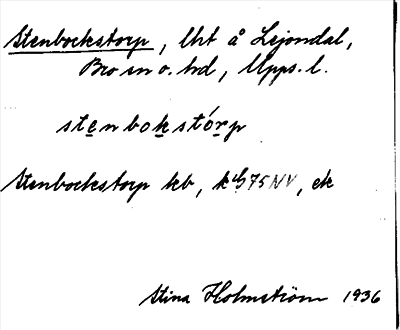 Stenbockstorp, lht å Lejondal,
Bro sn o. hd, Upps. l.
stenbokstórp
Stenbockstorp kb, 75 NV, ek
Stina Holmström 1936